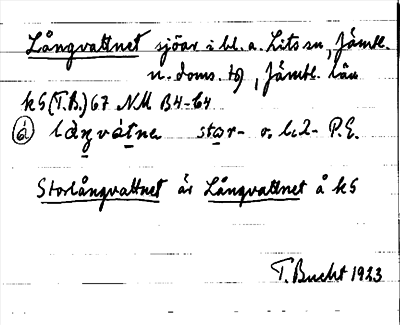 Långvattnet sjöar i bl. a. Lits sn, Jämtl.
n. doms. , Jämtl. län
kS (T.B.) 67 NM B4-C4
(á) låŋvátne star- o. l.2- P.E.
Storlångvattnet är Långvattnet å kS
T. Bucht 1923